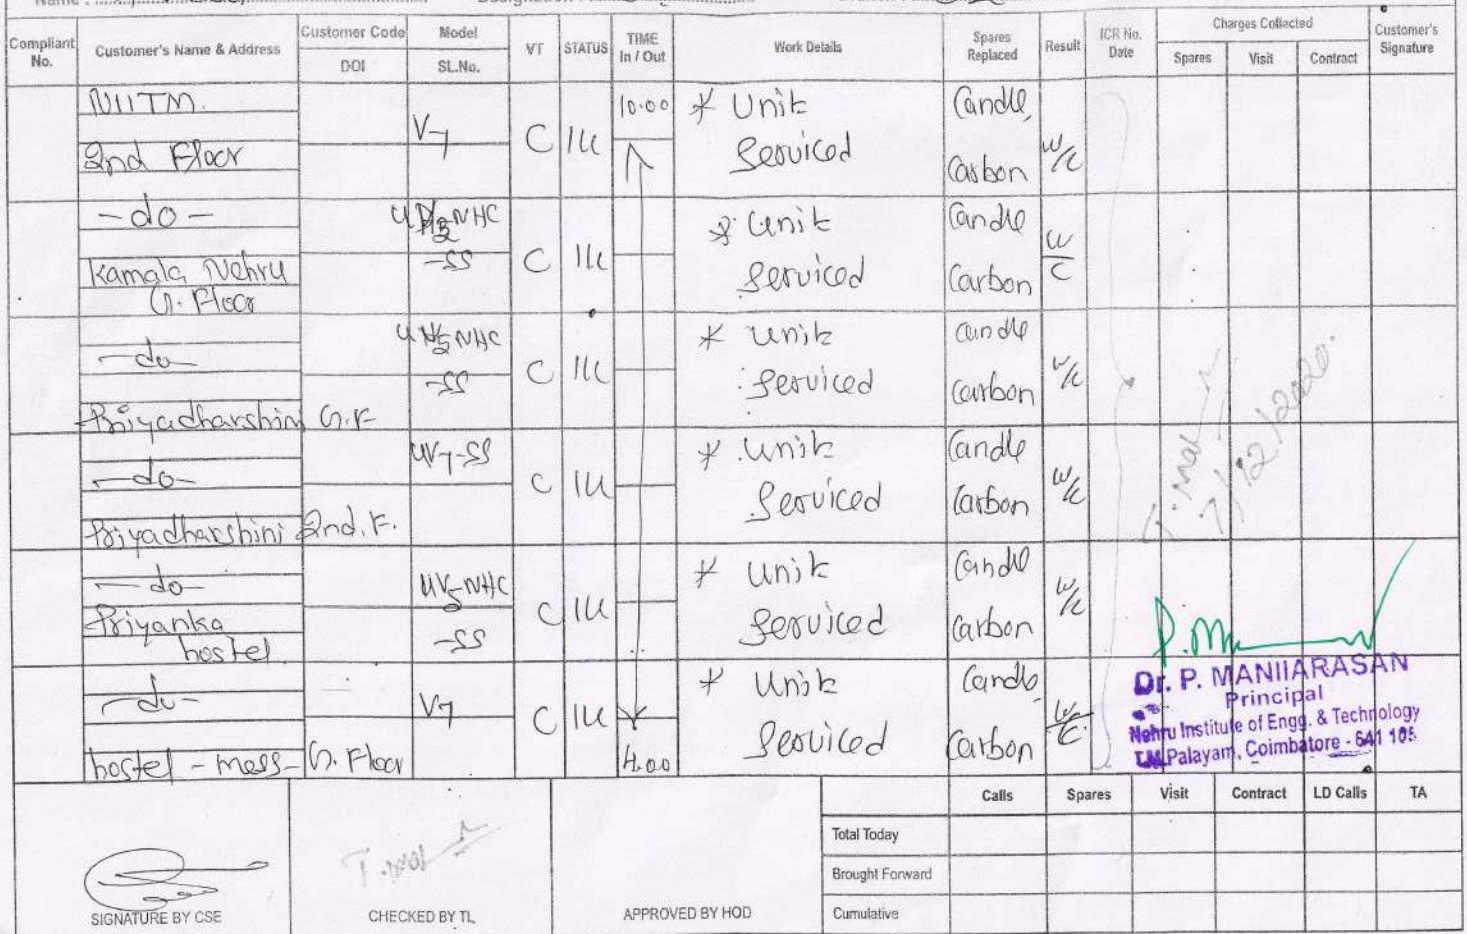 Name :
Compliant No.
Customer's Name & Address
Customer Code
DOI
Model
SL.No.
VT
STATUS
TIME
In / Out
Work Details
Spares Replaced
Result
ICR No.
Date
Charges Collected
Spares
Visit
Contract
Customer's Signature
NIITM.
2nd Floor
V7
C
10.00
* Unit Serviced
Candle,
Carbon
W/C
- do -
Kamala Nehru
G. Floor
NHC
-SS
C
* Unit Serviced
Candle
Carbon
W/C
- do -
Priyadharshini G.F
NHC
-SS
C
* Unit Serviced
Candle
Carbon
W/C
- do -
Priyadharshini 2nd. F.
UV7-SS
C
* Unit Serviced
Candle
Carbon
W/C
- do -
Priyanka
hostel
UV5-NHC
-SS
C
* Unit Serviced
Candle
Carbon
W/C
- do -
hostel - mess - G. Floor
V7
C
4.00
* Unit Serviced
Candle
Carbon
W/C
7/12/2020.
Dr. P. MANIIARASAN
Principal
Nehru Institute of Engg. & Technology
T.M.Palayam, Coimbatore - 641 105
Calls
Spares
Visit
Contract
LD Calls
TA
Total Today
Brought Forward
Cumulative
SIGNATURE BY CSE
CHECKED BY TL
APPROVED BY HOD